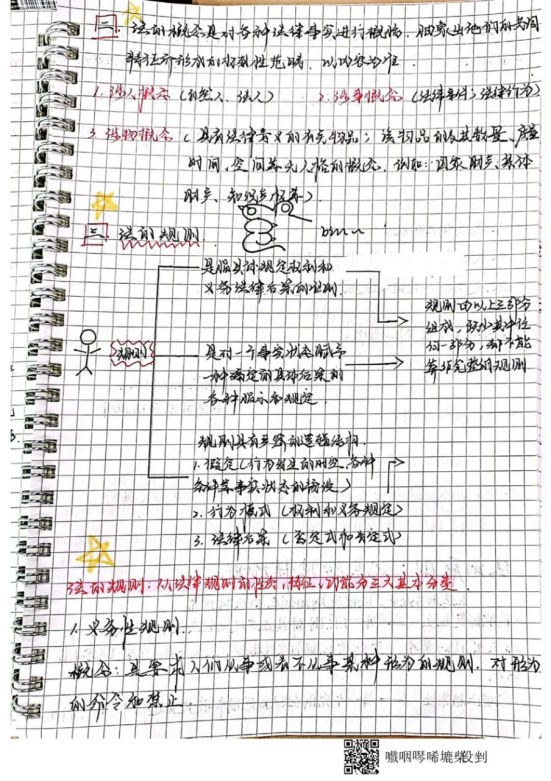 二、法的概念是对各种法律事实进行概括，抽象出他们的共同
特征而形成的权威性范畴，以内容为准
1.涉人概念（自然人、法人） 2.涉事概念（法律事件；法律行为）
3.涉物概念（具有法律意义的有关物品；该物品的及其数量、质量
时间、空间等无人格的概念，例如：国家财产、集体
财产、知识产权等）
三、法的规则
是指具体规定权利和
义务法律后果的准则
规则由以上三部分
组成，缺少其中任
何一部分，都不能
算作完整的规则
规则
是对一个事实状态赋予
一种确定的具体后果的
各种指示和规定
规则具有严密的逻辑结构
1.假定（行为发生的时空、各种
条件等事实状态的预设）
2.行为模式（权利和义务规定）
3.法律后果（否定式和肯定式）
法的规则：从法律规则的性质，特征，功能分三大基本分类
1.义务性规则
概念：是要求人们从事或者不从事某种行为的规则，对行为
的命令和禁止
嘅咽嘤唏摭槳毀到